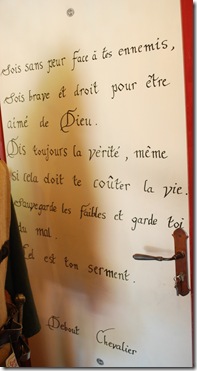 Sois sans peur face à tes ennemis,
Sois brave et droit pour être
aimé de Dieu.
Dis toujours la vérité, même
si cela doit te coûter la vie.
Sauvegarde les faibles et garde toi
du mal.
Tel est ton serment.
Debout Chevalier